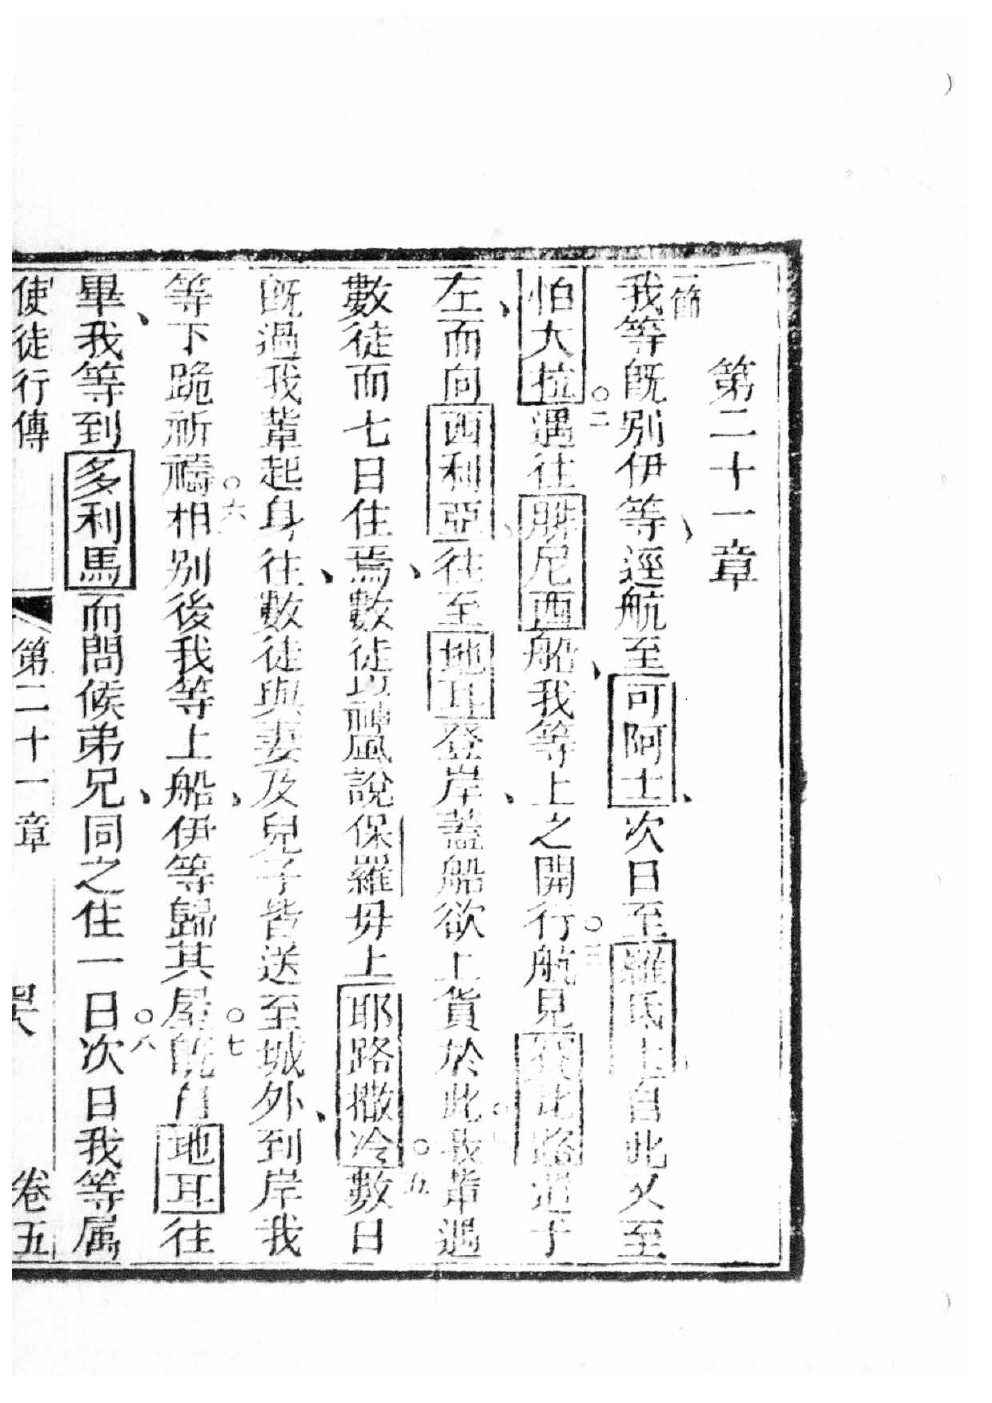 第二十一章
一節
我等既別伊等逕航至可阿士次日至羅氏士自此又至
怕大拉○二遇往腓尼西船我等上之開行航○三見
左而向西利亞往至地耳登岸蓋船欲上貨於此○四我輩遇
數徒而七日住焉數徒以神風說保羅毋上耶路撒冷○五數日
既過我輩起身往數徒與妻及兒子皆送至城外到岸我
等下跪祈禱○六相別後我等上船伊等歸其屋○七既自地耳往
畢我等到多利馬而問候弟兄同之住一日○八次日我等属
使徒行傳
第二十一章
卷五